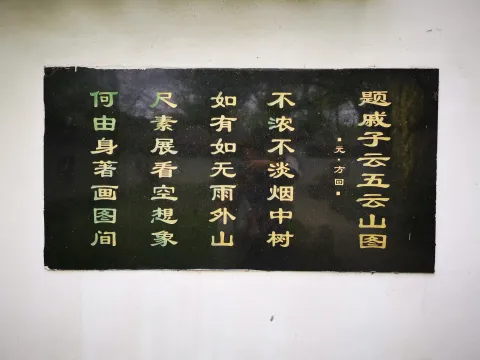 题戚子云五云山图
元·方回
不浓不淡烟中树
如有如无雨外山
尺素展看空想象
何由身著画图间